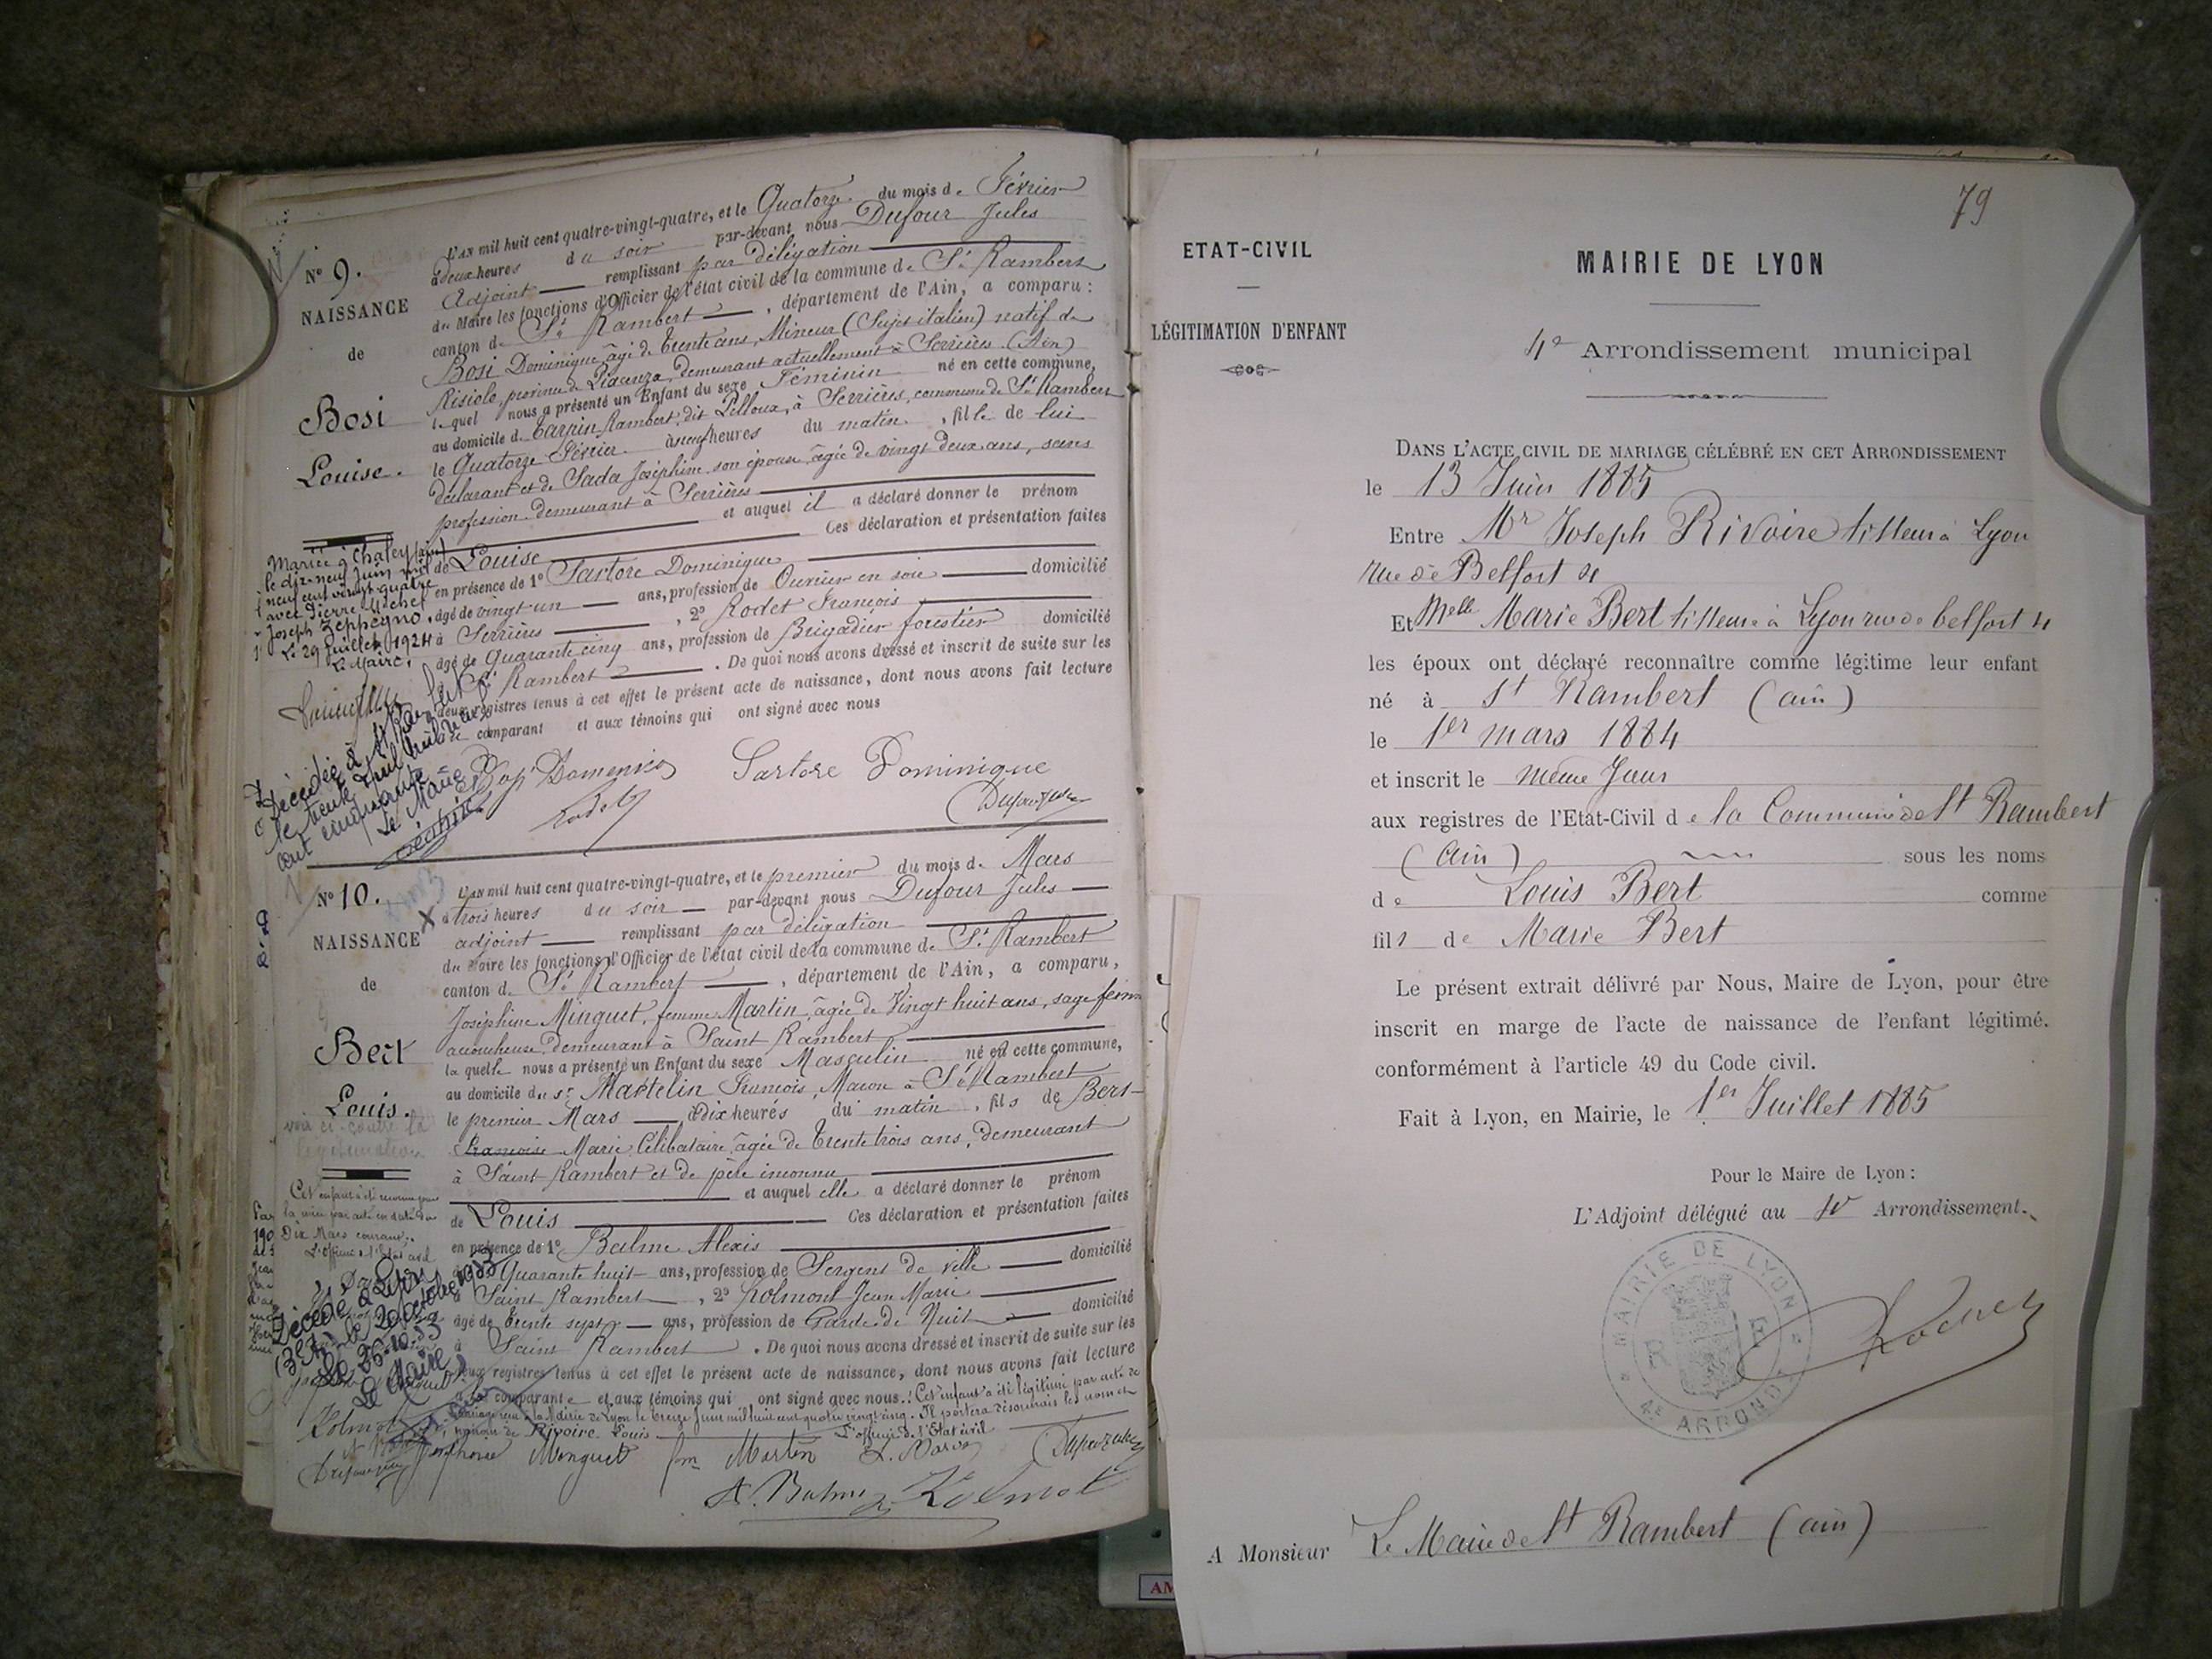 N° 9.
NAISSANCE
de
Bosi
Louise.
L'an mil huit cent quatre-vingt-quatre, et le Quatorze du mois de Février
à deux heures du soir par-devant nous Dufour Jules
Adjoint remplissant par délégation
du Maire les fonctions d'Officier de l'état civil de la commune de St Rambert
canton de St Rambert, département de l'Ain, a comparu :
Bosi Dominique, âgé de trente ans, Mineur (Sujet italien) natif de
province de Piacenza, demeurant actuellement à Serrières (Ain)
lequel nous a présenté un Enfant du sexe Féminin né en cette commune,
au domicile de Tarpin Rambert, dit Pelloux, à Serrières, commune de St Rambert
le Quatorze Février à neuf heures du matin, fille de lui
déclarant et de Sada Joséphine son épouse, âgée de vingt deux ans, sans
profession demeurant à Serrières
et auquel il a déclaré donner le prénom
de Louise Ces déclaration et présentation faites
en présence de 1° Sartore Dominique
âgé de vingt un ans, profession de Ouvrier en soie domicilié
à Serrières, 2° Rodet François
âgé de Quarante cinq ans, profession de Brigadier forestier domicilié
à St Rambert. De quoi nous avons dressé et inscrit de suite sur les
deux registres tenus à cet effet le présent acte de naissance, dont nous avons fait lecture
comparant et aux témoins qui ont signé avec nous
Mariée à Chaley (Ain)
le dix-neuf Juin mil
neuf cent vingt-quatre
avec Pierre Michel
Joseph Zeppegno.
Le 29 Juillet 1924
Le Maire,
Décédée à St Rambert
Le Maire
Domenico Sartore Dominique
Rodet
N° 10.
NAISSANCE
de
Bert
Louis.
voir ci-contre la
légitimation
L'an mil huit cent quatre-vingt-quatre, et le premier du mois de Mars
à trois heures du soir par-devant nous Dufour Jules
adjoint remplissant par délégation
du Maire les fonctions d'Officier de l'état civil de la commune de St Rambert
canton de St Rambert, département de l'Ain, a comparu,
Joséphine Minguet, femme Martin, âgée de Vingt huit ans, sage femme
accoucheuse, demeurant à Saint Rambert
laquelle nous a présenté un Enfant du sexe Masculin né en cette commune,
au domicile du sr Martelin François, Maçon à St Rambert
le premier Mars à dix heures du matin, fils de Bert
Françoise Marie, Célibataire, âgée de trente trois ans, demeurant
à Saint Rambert et de père inconnu
et auquel elle a déclaré donner le prénom
de Louis Ces déclaration et présentation faites
en présence de 1° Balme Alexis
Quarante huit ans, profession de Sergent de ville domicilié
à Saint Rambert, 2° Kolmont Jean Marie
âgé de trente sept ans, profession de Garde de Nuit domicilié
à Saint Rambert. De quoi nous avons dressé et inscrit de suite sur les
deux registres tenus à cet effet le présent acte de naissance, dont nous avons fait lecture
comparante et aux témoins qui ont signé avec nous. Cet enfant a été légitimé par acte de
mariage à la Mairie de Lyon le treize Juin mil huit cent quatre vingt cinq. Il portera désormais les nom et
prénom de Rivoire Louis L'officier de l'État civil
Cet enfant a été reconnu par
la mère par acte en date du
Dix Mars courant.
L'Officier de l'État civil
Décédé à Lyon
(3e) le 20 octobre 1953
Le 26-10-53
Le Maire
Minguet fm Martin
A. Balme
79
ETAT-CIVIL
LÉGITIMATION D'ENFANT
MAIRIE DE LYON
4e Arrondissement municipal
DANS L'ACTE CIVIL DE MARIAGE CÉLÉBRÉ EN CET ARRONDISSEMENT
le 13 Juin 1885
Entre Mr Joseph Rivoire tisseur à Lyon
rue de Belfort 4
Et Melle Marie Bert tisseuse à Lyon rue de belfort 4
les époux ont déclaré reconnaître comme légitime leur enfant
né à St Rambert (ain)
le 1er mars 1884
et inscrit le même Jour
aux registres de l'Etat-Civil de la Commune de St Rambert
(Ain) sous les noms
de Louis Bert comme
fils de Marie Bert
Le présent extrait délivré par Nous, Maire de Lyon, pour être
inscrit en marge de l'acte de naissance de l'enfant légitimé.
conformément à l'article 49 du Code civil.
Fait à Lyon, en Mairie, le 1er Juillet 1885
Pour le Maire de Lyon :
L'Adjoint délégué au 4e Arrondissement.
MAIRIE DE LYON
4E ARRONDT
R F
A Monsieur Le Maire de St Rambert (ain)
AM